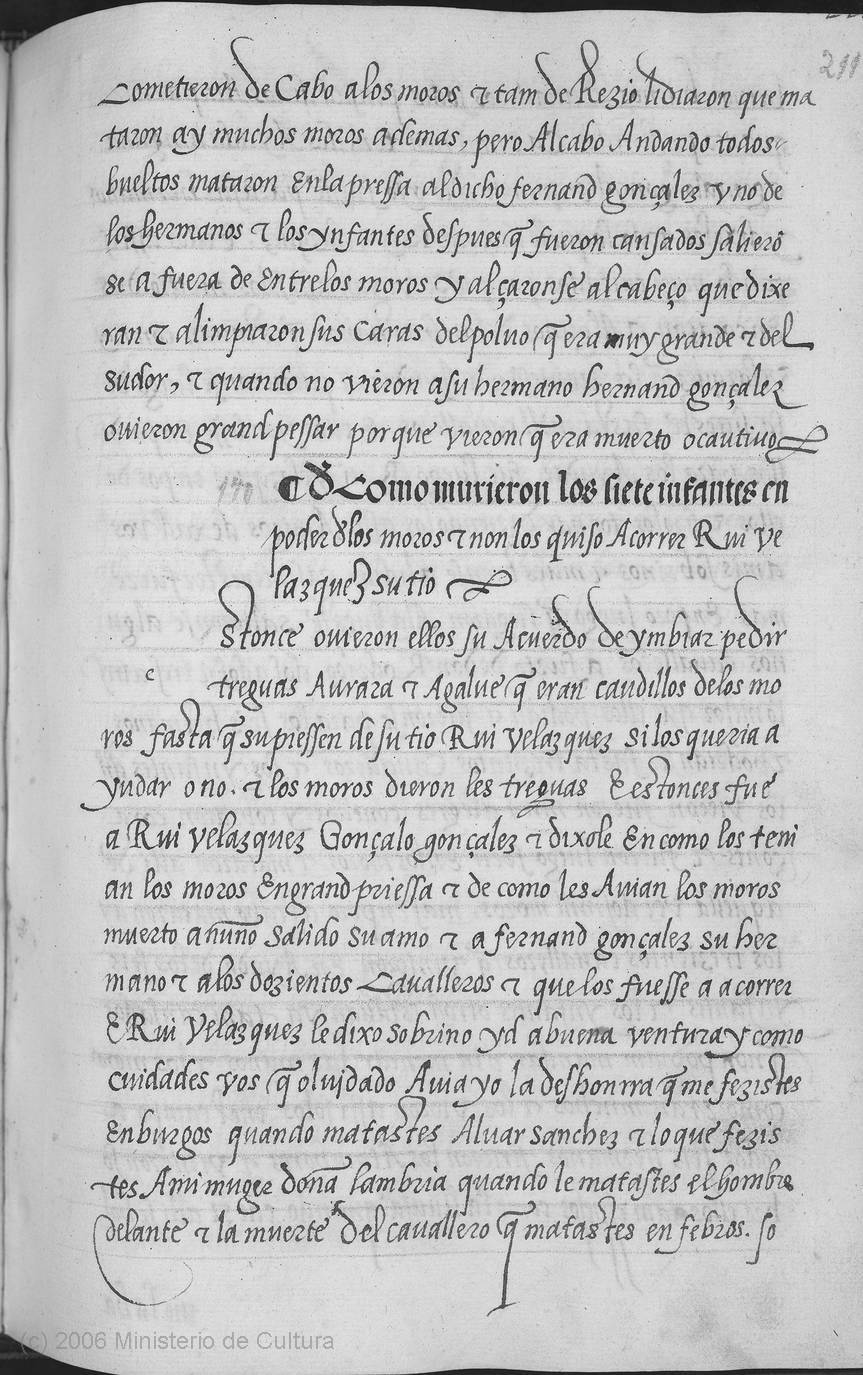 211
Cometieron de Cabo alos moros & tam de Rezio lidiaron que ma
taron ay muchos moros ademas, pero Alcabo Andando todos
bueltos mataron Enlapressa aldicho fernand gonçalez vno de
los hermanos & los ynfantes despues q̃ fueron cansados salierõ
se a fuera de Entrelos moros y alçaronse alcabeço que dixe
ran & alimpiaron sus Caras delpoluo q̃ era muy grande & del
sudor, & quando no vieron asu hermano hernand gonçalez
ovieron grand pessar porque vieron q̃ era muerto ocautiuo
190
¶ đ Como murieron los siete infantes en
poder đlos moros & non los quiso Acorrer Rui Ve
lazquez su tio
Stonce ovieron ellos su Acuerdo de ymbiar pedir
e
treguas Auiara & Agalue q̃ eran caudillos delos mo
ros fasta q̃ supiessen de su tio Rui Velazquez silos queria a
yudar o no. & los moros dieron les treguas E estonces fue
a Rui Velazquez Gonçalo gonçalez & dixole En como los teni
an los moros Engrand priessa & de como les Auian los moros
muerto anũno Salido su amo & a fernand gonçalez su her
mano & alos dozientos Cavalleros & que los fuesse a acorrer
E Rui Velazquez le dixo sobrino yd abuena ventura y como
cuidades vos q̃ olvidado Auia yo la deshonrra q̃ me fezistes
Enburgos quando matastes Aluar sanchez & lo que fezis
tes Ami muger doña lambria quando le matastes el hombre
delante & la muerte del cavallero q̃ matastes en febros. so
(c) 2006 Ministerio de Cultura